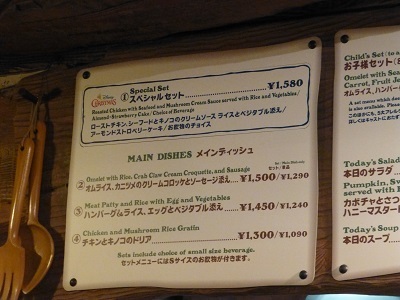 Disney
CHRISTMAS
Special Set
①スペシャルセット ¥1,580
Roasted Chicken with Seafood and Mushroom Cream Sauce served with Rice and Vegetables/
Almond-Strawberry Cake/Choice of Beverage
ローストチキン、シーフードとキノコのクリームソース ライスとベジタブル添え/
アーモンドストロベリーケーキ/お飲物のチョイス
MAIN DISHES メインディッシュ
セット/単品
Omelet with Rice, Crab Claw Cream Croquette, and Sausage
②オムライス、カニツメのクリームコロッケとソーセージ添え ¥1,500/¥1,290
Meat Patty and Rice with Egg and Vegetables
③ハンバーグ&ライス、エッグとベジタブル添え ¥1,450/¥1,240
Chicken and Mushroom Rice Gratin
④チキンとキノコのドリア ¥1,300/¥1,090
Sets include choice of small size beverage.
セットメニューにはSサイズのお飲物が付きます。
Child's Set
お子様セット
Omelet with
Carrot, Fruit
オムライス、ハンバー
A set menu which
is also available. Please
Today's Salad
本日のサラダ
Pumpkin, S
with Bread
カボチャとさつ
ハニーマスター
Today's Soup
本日のスープ